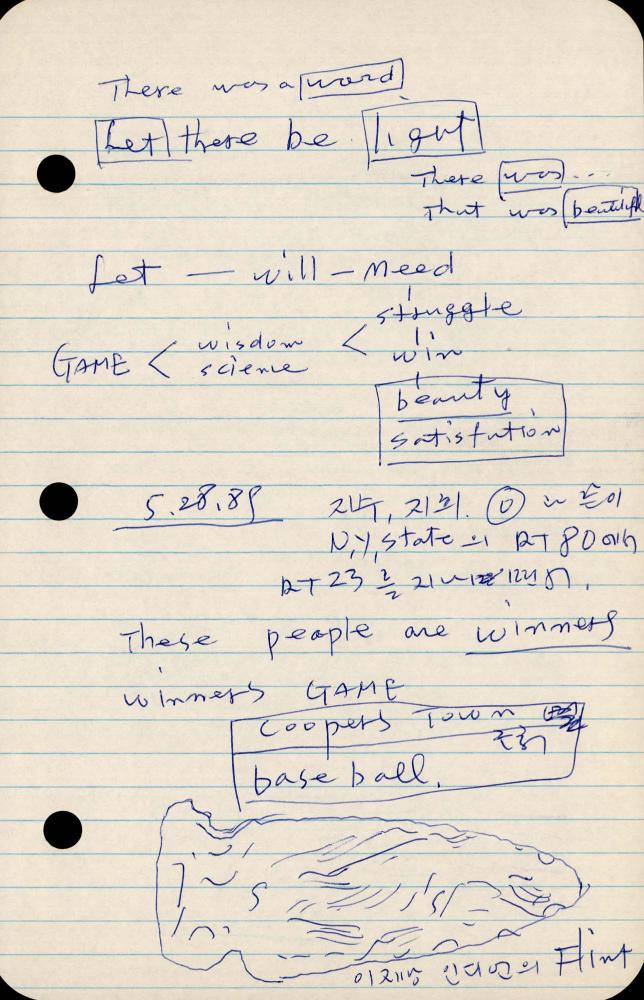 There was a word
Let there be light
There was...
That was beautiful
Let — will — need
struggle
GAME < wisdom <
science
win
beauty
satisfution
5.28.89
지수, 지희.
N.Y, state 의 RT 80에서
RT 23 를
These people are winners
winners GAME
Coopers Town
base ball.
인디언의 Flint